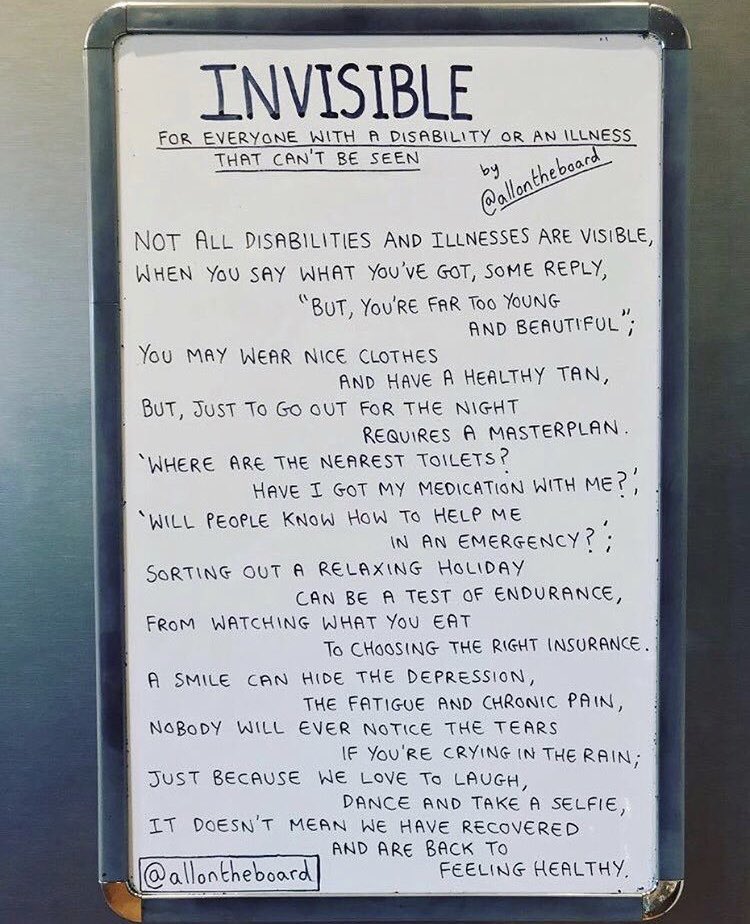 INVISIBLE
FOR EVERYONE WITH A DISABILITY OR AN ILLNESS
THAT CAN'T BE SEEN
by
@allontheboard
NOT ALL DISABILITIES AND ILLNESSES ARE VISIBLE,
WHEN YOU SAY WHAT YOU'VE GOT, SOME REPLY,
"BUT, YOU'RE FAR TOO YOUNG
AND BEAUTIFUL";
YOU MAY WEAR NICE CLOTHES
AND HAVE A HEALTHY TAN,
BUT, JUST TO GO OUT FOR THE NIGHT
REQUIRES A MASTERPLAN.
'WHERE ARE THE NEAREST TOILETS?
HAVE I GOT MY MEDICATION WITH ME?',
'WILL PEOPLE KNOW HOW TO HELP ME
IN AN EMERGENCY?';
SORTING OUT A RELAXING HOLIDAY
CAN BE A TEST OF ENDURANCE,
FROM WATCHING WHAT YOU EAT
TO CHOOSING THE RIGHT INSURANCE.
A SMILE CAN HIDE THE DEPRESSION,
THE FATIGUE AND CHRONIC PAIN,
NOBODY WILL EVER NOTICE THE TEARS
IF YOU'RE CRYING IN THE RAIN;
JUST BECAUSE WE LOVE TO LAUGH,
DANCE AND TAKE A SELFIE,
IT DOESN'T MEAN WE HAVE RECOVERED
AND ARE BACK TO
FEELING HEALTHY.
@allontheboard